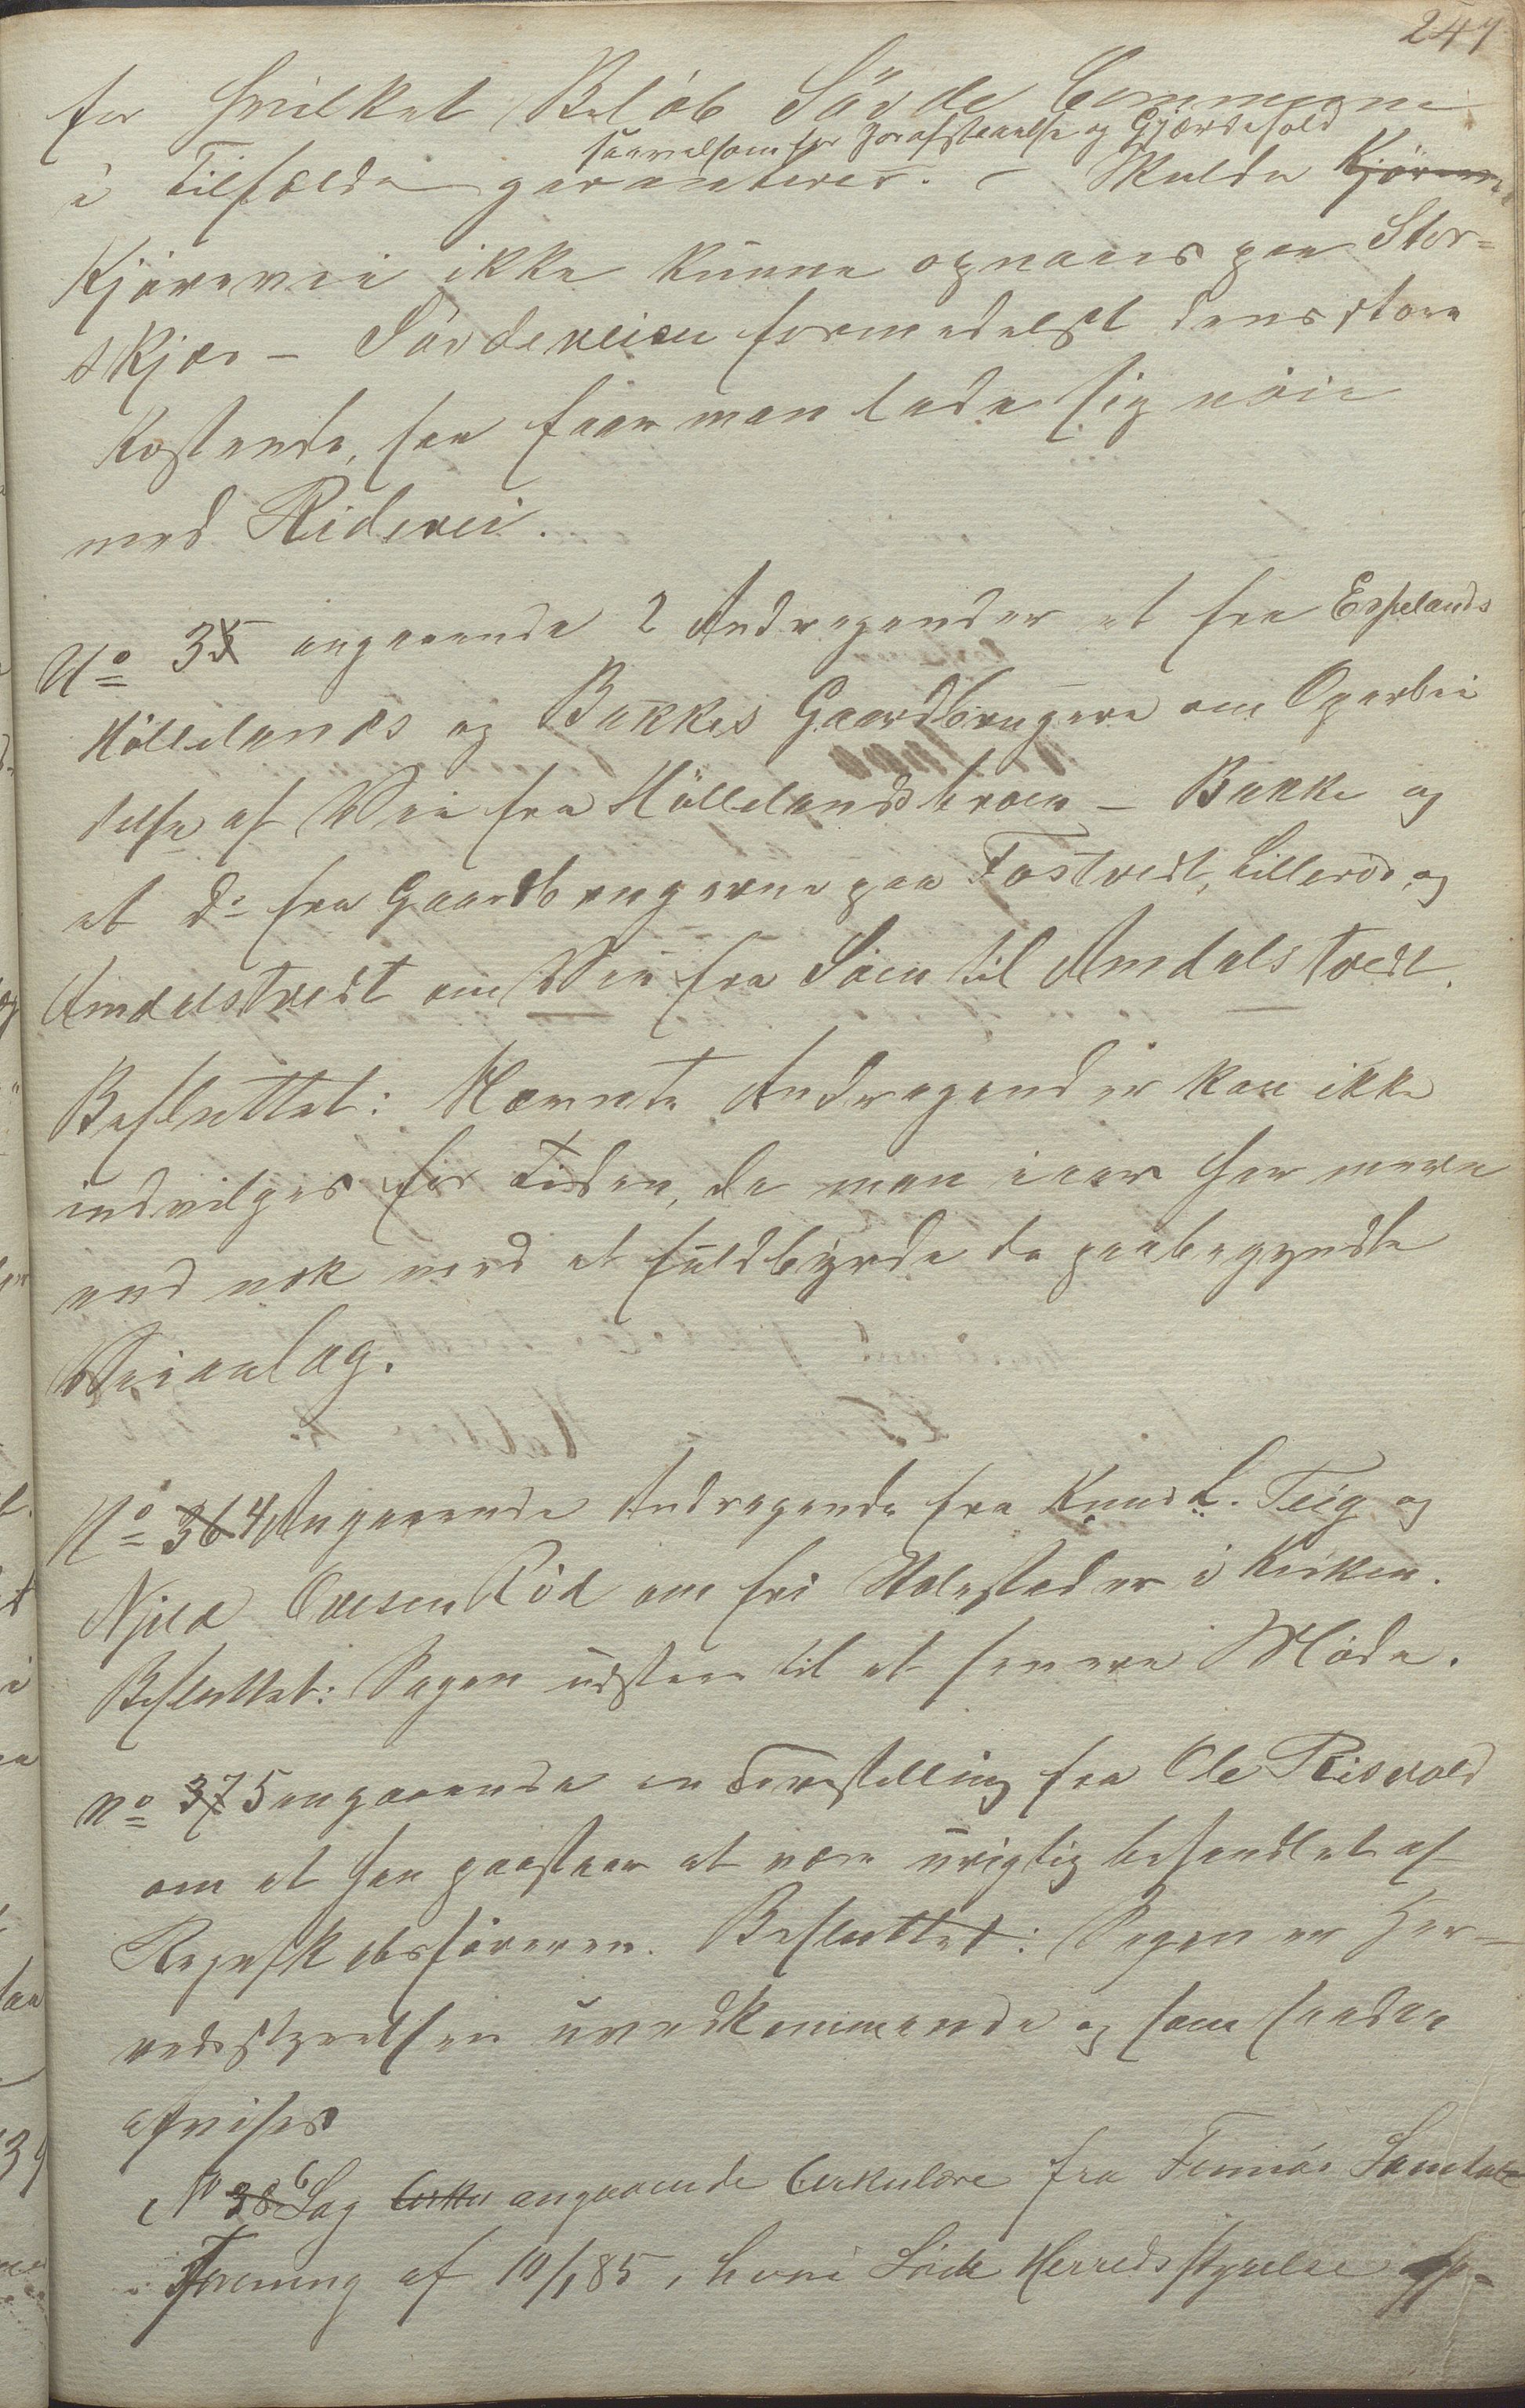 247
for hvilket Beløb Søvde Commune
saavelsom for Jorafstaaelse og Gjærdehold
i Tilfælde garanterer. – Skulde Kjøreve
Kjørevei ikke kunne opnaaes paa Stor-
skjær – Søvdeveien formedelst dens store
Kostende, saa faar man lade sig nøie
med Ridevei.
No 35 angaaende 2 Andragender et fra Espelands
Höllelands og Bakkes Gaardbrugere om Oparbei
delse af Vei fra Höllelandsbroen – Bakke og
et do fra Gaardbrugerne paa Fostvedt, Lillerød og
Amdalstvedt om Vei fra Söen til Amdalstvedt.
Besluttet: Nævnte Andragender kan ikke
indvilges for Tiden, da man iaar har mere
end nok med at fuldbyrde de paabegyndte
Veianlæg.
No 36 4 Angaaende Andragende fra Knud L. Teig og
Njeld Olesen Röd om fri Stolestader i Kirken.
Besluttet: Sagen udstaar til et senere Møde.
No 37 5 angaaende en Forestilling fra Ole Risvold
om at han paastaar at være urigtig behandlet af
Regnskabsføreren. Besluttet: Sagen er Her-
redsstyrelsen uvedkommende og som saadan
afvises
No 38 6 Sag Cirku angaaende Cirkulære fra Samtale
Forening af 10/1 85, hvori Søvde Herredsstyrelse